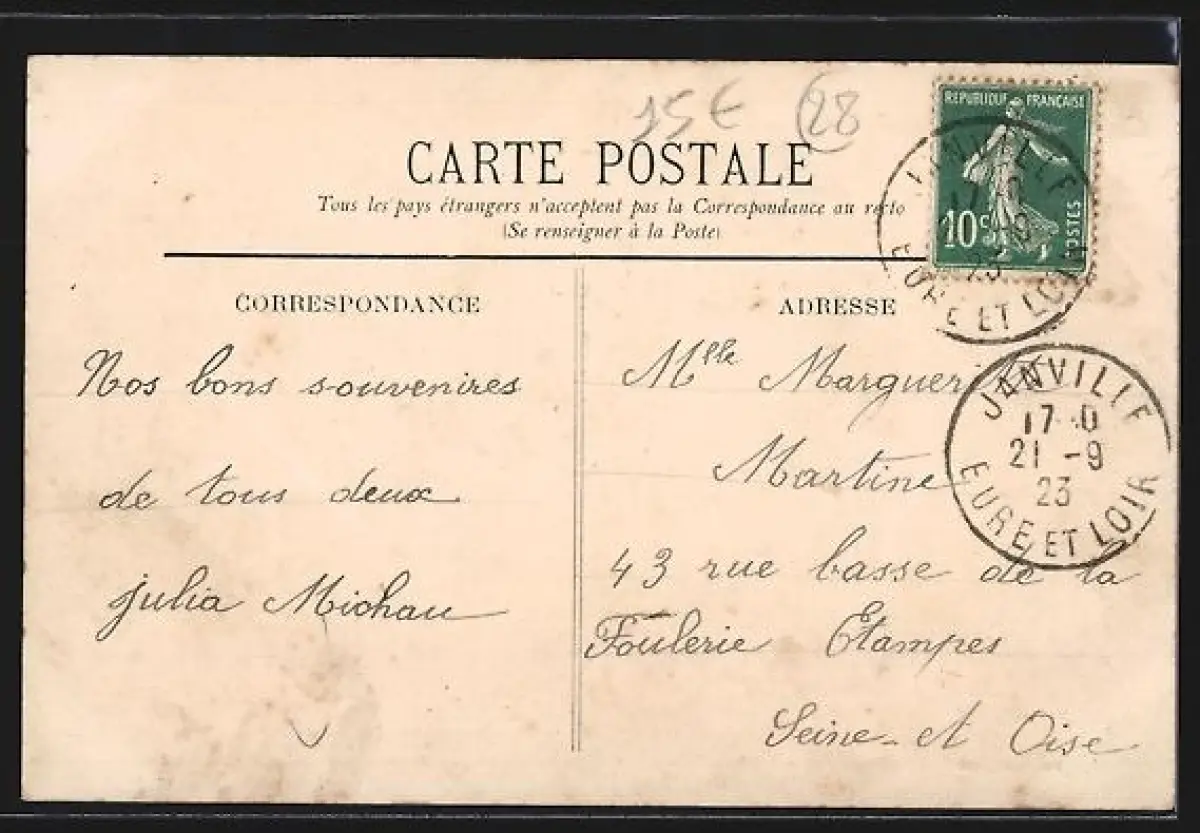 15€ (28
CARTE POSTALE
Tous les pays étrangers n'acceptent pas la Correspondance au recto
(Se renseigner à la Poste)
REPUBLIQUE FRANÇAISE
10c POSTES
JANVILLE
EURE ET LOIR
CORRESPONDANCE
Nos bons souvenires
de tous deux
Julia Michau
ADRESSE
Mlle Marguerite
Martine
43 rue basse de la
Foulerie Etampes
Seine-et Oise
JANVILLE
17 0
21 -9
23
EURE ET LOIR